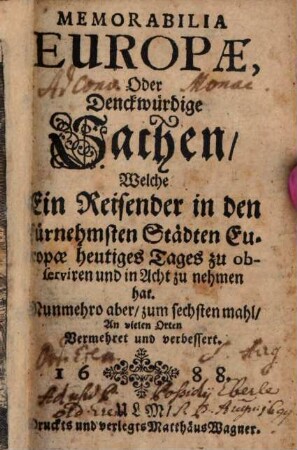 MEMORABILIA
EUROPÆ,
Ad Conv. Monac
Oder
Denckwürdige
Sachen/
Welche
Ein Reisender in den
fürnehmsten Städten Eu-
ropæ heutiges Tages zu ob-
serviren und in Acht zu nehmen
hat.
Nunmehro aber/ zum sechsten mahl/
An vielen Orten
Vermehret und verbessert.
1688.
ULM/
Druckts und verlegts Matthäus Wagner.